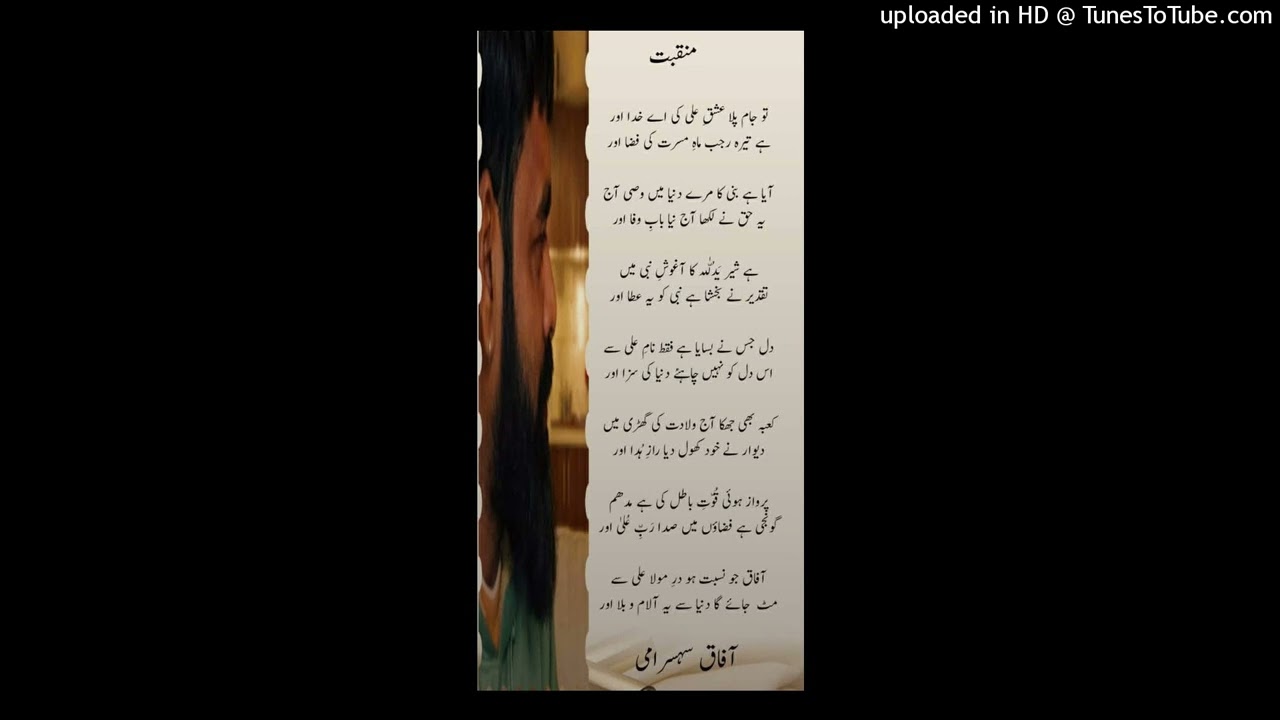 uploaded in HD @ TunesToTube.com
منقبت
تو جام پلا عشقِ علی کی اے خدا اور
ہے تیرہ رجب ماہِ مسرت کی فضا اور
آیا ہے بنی کا مرے دنیا میں وصی آج
یہ حق نے لکھا آج نیا بابِ وفا اور
ہے شیر یَدُاللہ کا آغوشِ نبی میں
تقدیر نے بخشا ہے نبی کو یہ عطا اور
دل جس نے بسایا ہے فقط نامِ علی سے
اس دل کو نہیں چاہئے دنیا کی سزا اور
کعبہ بھی جھکا آج ولادت کی گھڑی میں
دیوار نے خود کھول دیا رازِ ہُدا اور
پرواز ہوئی قُوّتِ باطل کی ہے مدھم
گونجی ہے فضاؤں میں صدا رَبِّ عُلیٰ اور
آفاق جو نسبت ہو درِ مولا علی سے
مٹ جائے گا دنیا سے یہ آلام و بلا اور
آفاق سہسرامی